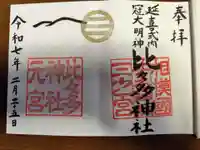 奉拝
延喜式内
冠大明神
比々多神社
三之宮
元宮
比々多神社
令和七年二月二十五日